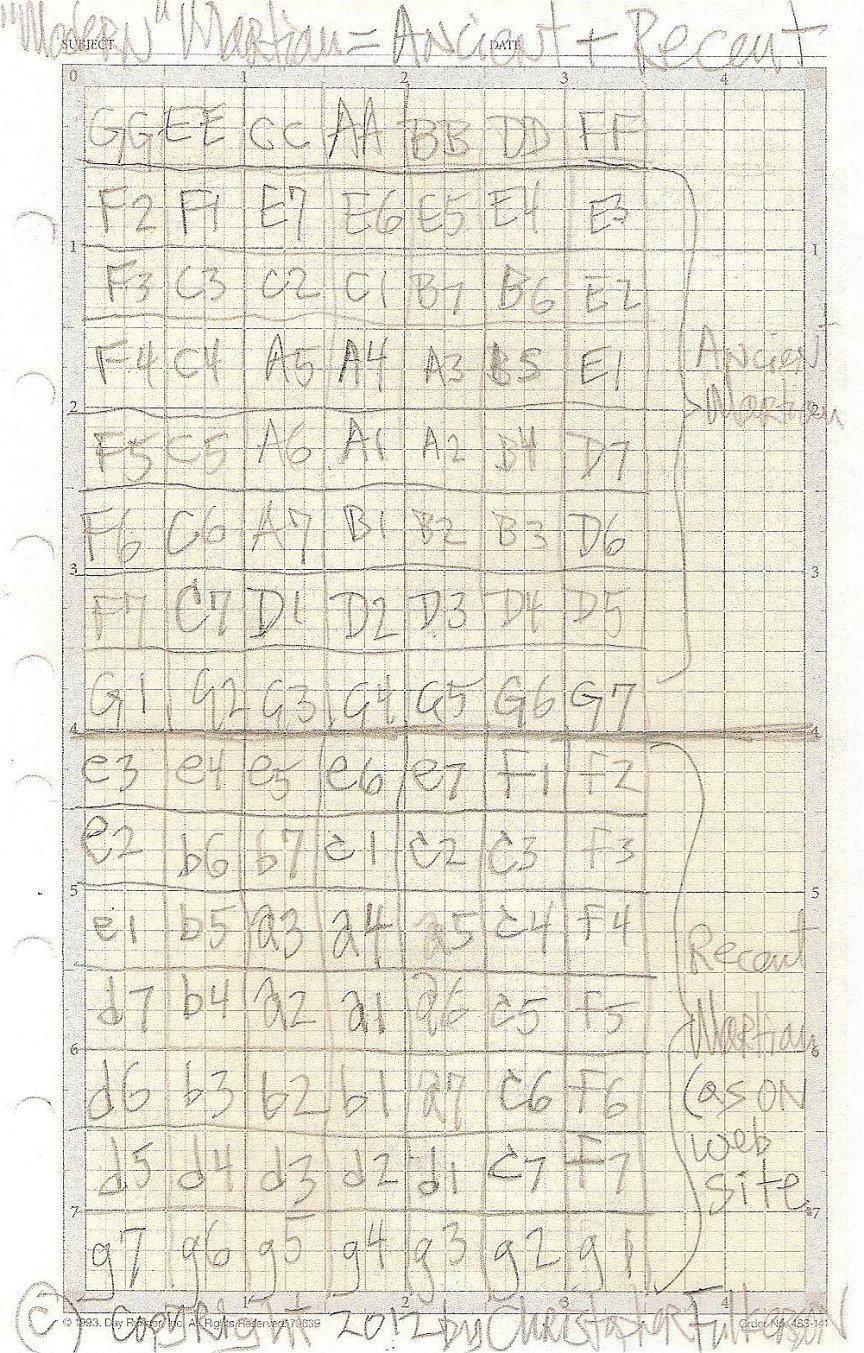 "Modern" Martian = Ancient + Recent
SUBJECT DATE
0 1 2 3 4
GG EE CC AA BB DD FF
F2 F1 E7 E6 E5 E4 E3
1 1
F3 C3 C2 C1 B7 B6 E2
F4 C4 A5 A4 A3 B5 E1
Ancient
2 2
Martian
F5 C5 A6 A1 A2 B4 D7
F6 C6 A7 B1 B2 B3 D6
3 3
F7 C7 D1 D2 D3 D4 D5
G1 G2 G3 G4 G5 G6 G7
4 4
e3 e4 e5 e6 e7 F1 F2
e2 b6 b7 c1 c2 c3 F3
5 5
e1 b5 a3 a4 a5 c4 F4
Recent
d7 b4 a2 a1 a6 c5 F5
Martian
6 6
d6 b3 b2 b1 a7 c6 F6
(as on
web
d5 d4 d3 d2 d1 c7 F7
site
7 7
g7 g6 g5 g4 g3 g2 g1
1 2 3 4
© 1993. Day Runner, Inc. All Rights Reserved
(c) copyright 2012 by Christopher Fulkerson